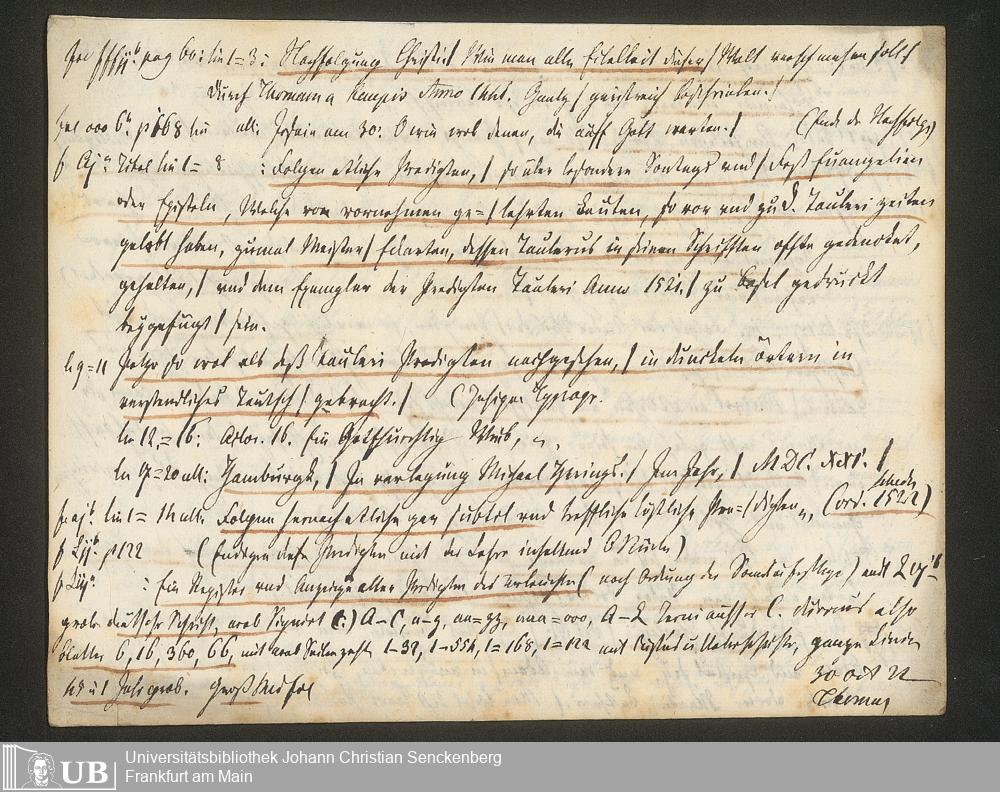 pag 60: lin 1=3: Nachfolgung Christi:/ Wie man alle Eitelkeit dieser/ Welt verschmehen soll:/
durch Thomam a Kempis Anno 1441. Gantz/ geistreich beschrieben./
ooo 6 p 168 lin ult: Jesaiae am 30: O wie wol denen, die auff Gott warten./ (Ende der Nachfolg)
Titel lin 1=8 : Folgen etliche Predigten,/ so über besondere Sontags und/ Fest Euangelien
oder Episteln, Welche von vornehmen ge=/lehrten Leuten, so vor und zu D. Tauleri zeiten
gelebt haben, zumal Meister/ Eckarten, dessen Taulerus in seinen Schrifften offte gedencket,
gehalten,/ und dem Exemplar der Predigten Tauleri Anno 1521./ zu Basel gedruckt
beygefügt/ sein.
lin 9=11 Jetzo so wol als deß Tauleri Predigten nachgesehen,/ in dunckeln örtern in
verstendliches Teutsch/ gebracht./ (Insigne Typogr.
lin 12=16: 16. Ein Gottfürchtig Weib,
lin 17=20 ult: Hamburgk,/ In verlegung Michael Herings./ Im Jahr,/ MDC. XXI./
lin 1= 14 ult. Folgen hernach etliche gar/ subtil und treffliche köstliche Pre=/digten (1522)
p 122 (Endigen diese Predigten mit der Lehre
: Ein Register und Anzeige aller Predigten des Erleuchten (nach Ordnung der Sonn u Festtage) endt
grobe deutsche Schrift, Signatur (:) A–C, a–z, aa=zz, aaa=ooo, A–L
Blätter 6, 16, 360, 66, mit Seitenzahl 1–32, 1–554, 1=168, 1=122 mit Custos u.
30 oct 22
Thomas
Universitätsbibliothek Johann Christian Senckenberg
Frankfurt am Main
UB